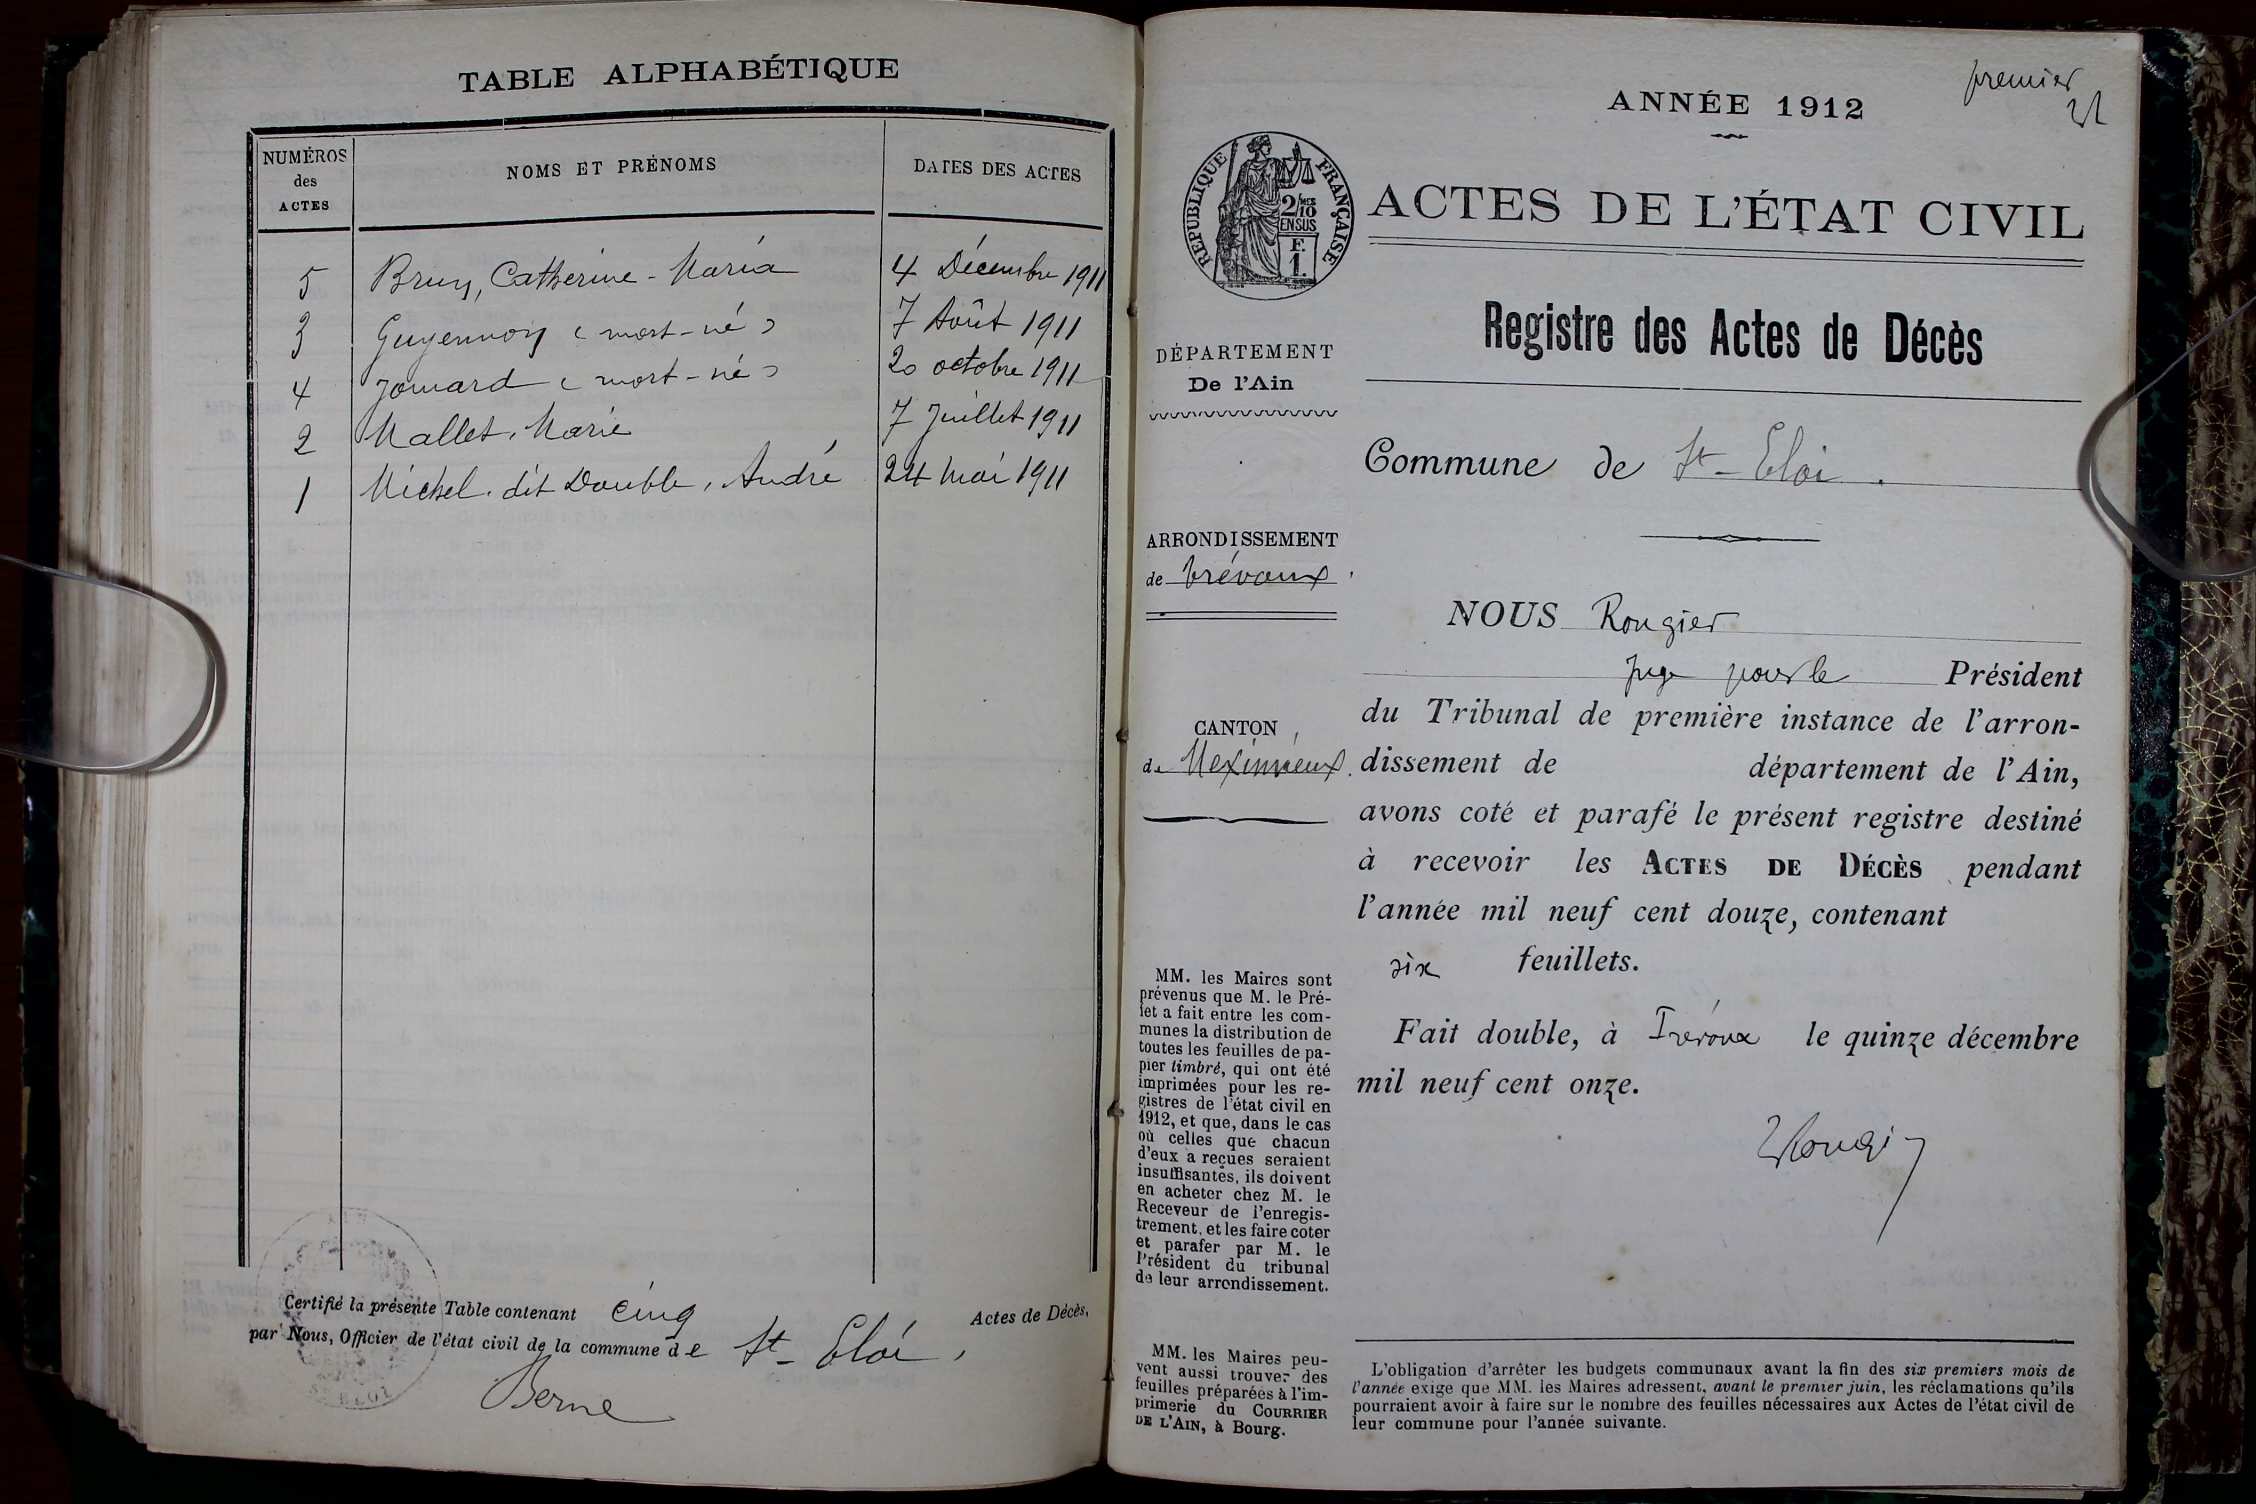 TABLE ALPHABÉTIQUE
NUMÉROS des ACTES
NOMS ET PRÉNOMS
DATES DES ACTES
5 Brun, Catherine-Maria 4 Décembre 1911
3 Guyennon (mort-né) 7 Août 1911
4 Jomard (mort-né) 20 octobre 1911
2 Mallet, Marie 7 Juillet 1911
1 Michel dit Double, André 24 Mai 1911
Certifié la présente Table contenant cinq Actes de Décès,
par Nous, Officier de l'état civil de la commune de St-Eloi,
Berne
ST ELOI
premier
ANNÉE 1912
RÉPUBLIQUE FRANÇAISE
2/10 MES
EN SUS
F.
1.
ACTES DE L'ÉTAT CIVIL
Registre des Actes de Décès
DÉPARTEMENT
De l'Ain
Commune de St-Eloi.
ARRONDISSEMENT
de Trévoux
CANTON
de Meximieux.
NOUS Rougier
juge pour le Président
du Tribunal de première instance de l'arron-
dissement de département de l'Ain,
avons coté et parafé le présent registre destiné
à recevoir les ACTES DE DÉCÈS pendant
l'année mil neuf cent douze, contenant
six feuillets.
Fait double, à Trévoux le quinze décembre
mil neuf cent onze.
Rougier
MM. les Maires sont
prévenus que M. le Pré-
fet a fait entre les com-
munes la distribution de
toutes les feuilles de pa-
pier timbré, qui ont été
imprimées pour les re-
gistres de l'état civil en
1912, et que, dans le cas
où celles que chacun
d'eux a reçues seraient
insuffisantes, ils doivent
en acheter chez M. le
Receveur de l'enregis-
trement, et les faire coter
et parafer par M. le
Président du tribunal
de leur arrondissement.
MM. les Maires peu-
vent aussi trouver des
feuilles préparées à l'im-
primerie du COURRIER
DE L'AIN, à Bourg.
L'obligation d'arrêter les budgets communaux avant la fin des six premiers mois de
l'année exige que MM. les Maires adressent, avant le premier juin, les réclamations qu'ils
pourraient avoir à faire sur le nombre des feuilles nécessaires aux Actes de l'état civil de
leur commune pour l'année suivante.